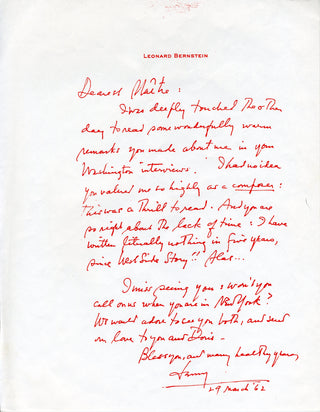 LEONARD BERNSTEIN
Dearest Maître :
I was deeply touched the other
day to read some wonderfully warm
remarks you made about me in your
Washington "interviews". I had no idea
you valued me so highly as a composer:
this was a thrill to read. And you are
so right about the lack of time: I have
written literally nothing in five years,
since West Side Story!! Alas...
I miss seeing you: won't you
call on us when you are in New York?
We would adore to see you both, and send
our love to you and Doris.
Bless you, and many healthy years,
Lenny
29 March '62